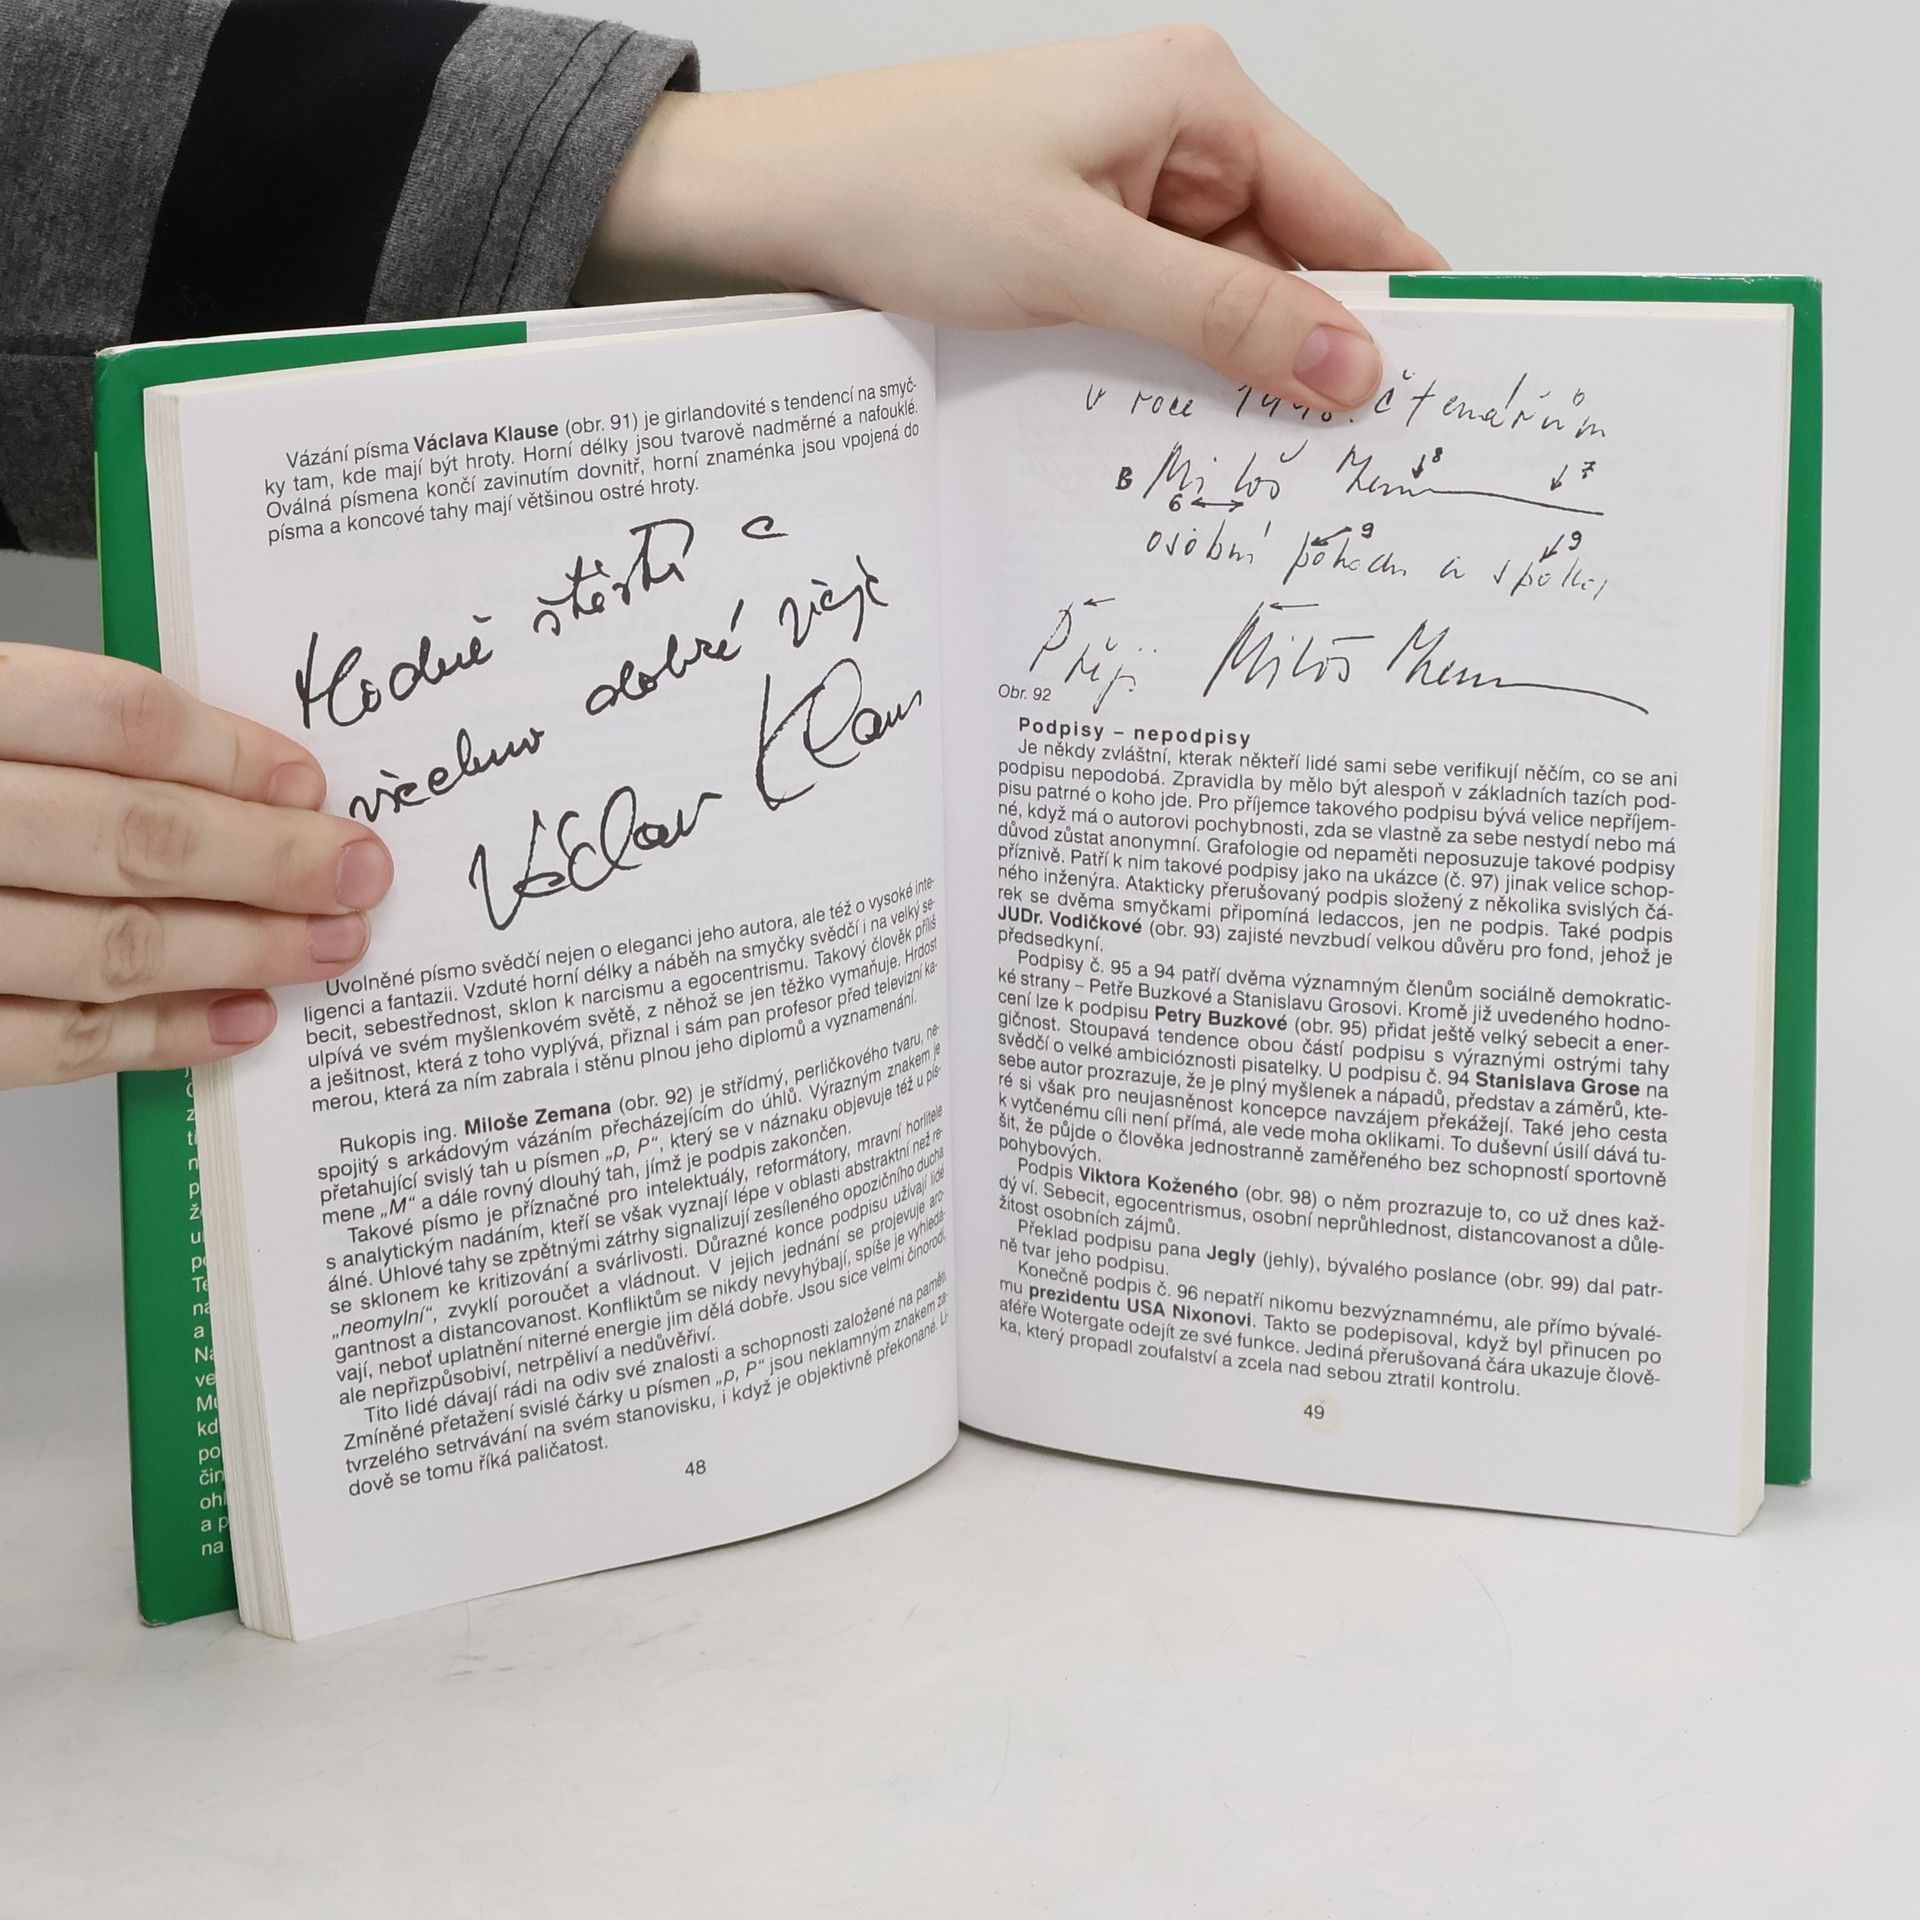 Vázání písma Václava Klause (obr. 91) je girlandovité s tendencí na smyč-
ky tam, kde mají být hroty. Horní délky jsou tvarově nadměrné a nafouklé.
Oválná písmena končí zavinutím dovnitř, horní znaménka jsou vpojená do
písma a koncové tahy mají většinou ostré hroty.
Hodně štěstí a
všechno dobré
Václav Klaus
Uvolněné písmo svědčí nejen o eleganci jeho autora, ale též o vysoké inte-
ligenci a fantazii. Vzduté horní délky a náběh na smyčky svědčí i na velký se-
becit, sebestřednost, sklon k narcismu a egocentrismu. Takový člověk příliš
ulpívá ve svém myšlenkovém světě, z něhož se jen těžko vymaňuje. Hrdost
a ješitnost, která z toho vyplývá, přiznal i sám pan profesor před televizní ka-
merou, která za ním zabrala i stěnu plnou jeho diplomů a vyznamenání.
Rukopis ing. Miloše Zemana (obr. 92) je střídmý, perličkového tvaru, ne-
spojitý s arkádovým vázáním přecházejícím do úhlů. Výrazným znakem je
přetahující svislý tah u písmen „p, P“, který se v náznaku objevuje též u pís-
mene „M“ a dále rovný dlouhý tah, jímž je podpis zakončen.
Takové písmo je příznačné pro intelektuály, reformátory, mravní horlitele
s analytickým nadáním, kteří se však vyznají lépe v oblasti abstraktní než re-
álné. Úhlové tahy se zpětnými zátrhy signalizují zesíleného opozičního ducha
se sklonem ke kritizování a svárlivosti. Důrazné konce podpisu užívají lidé
„neomylní“, zvyklí poroučet a vládnout. V jejich jednání se projevuje aro-
gantnost a distancovanost. Konfliktům se nikdy nevyhýbají, spíše je vyhledá-
vají, neboť uplatnění niterné energie jim dělá dobře. Jsou sice velmi činorodí,
ale nepřizpůsobiví, netrpěliví a nedůvěřiví.
Tito lidé dávají rádi na odiv své znalosti a schopnosti založené na paměti.
Zmíněné přetažení svislé čárky u písmen „p, P“ jsou neklamným znakem za-
tvrzelého setrvávání na svém stanovisku, i když je objektivně překonané. Li-
dově se tomu říká paličatost.
48
v roce čtenářům
B Miloš Zeman 8 7
6
osobní pohodu a 9 9
Přeji Miloš Zeman
Obr. 92
Podpisy – nepodpisy
Je někdy zvláštní, kterak někteří lidé sami sebe verifikují něčím, co se ani
podpisu nepodobá. Zpravidla by mělo být alespoň v základních tazích pod-
pisu patrné o koho jde. Pro příjemce takového podpisu bývá velice nepříjem-
né, když má o autorovi pochybnosti, zda se vlastně za sebe nestydí nebo má
důvod zůstat anonymní. Grafologie od nepaměti neposuzuje takové podpisy
příznivě. Patří k nim takové podpisy jako na ukázce (č. 97) jinak velice schop-
ného inženýra. Atakticky přerušovaný podpis složený z několika svislých čá-
rek se dvěma smyčkami připomíná ledaccos, jen ne podpis. Také podpis
JUDr. Vodičkové (obr. 93) zajisté nevzbudí velkou důvěru pro fond, jehož je
předsedkyní.
Podpisy č. 95 a 94 patří dvěma významným členům sociálně demokratic-
ké strany – Petře Buzkové a Stanislavu Grosovi. Kromě již uvedeného hodno-
cení lze k podpisu Petry Buzkové (obr. 95) přidat ještě velký sebecit a ener-
gičnost. Stoupavá tendence obou částí podpisu s výraznými ostrými tahy
svědčí o velké ambicióznosti pisatelky. U podpisu č. 94 Stanislava Grose na
sebe autor prozrazuje, že je plný myšlenek a nápadů, představ a záměrů, kte-
ré si však pro neujasněnost koncepce navzájem překážejí. Také jeho cesta
k vytčenému cíli není přímá, ale vede moha oklikami. To duševní úsilí dává tu-
šit, že půjde o člověka jednostranně zaměřeného bez schopností sportovně
pohybových.
Podpis Viktora Koženého (obr. 98) o něm prozrazuje to, co už dnes kaž-
dý ví. Sebecit, egocentrismus, osobní neprůhlednost, distancovanost a důle-
žitost osobních zájmů.
Překlad podpisu pana Jegly (jehly), bývalého poslance (obr. 99) dal patr-
ně tvar jeho podpisu.
Konečně podpis č. 96 nepatří nikomu bezvýznamnému, ale přímo bývalé-
mu prezidentu USA Nixonovi. Takto se podepisoval, když byl přinucen po
aféře Wotergate odejít ze své funkce. Jediná přerušovaná čára ukazuje člově-
ka, který propadl zoufalství a zcela nad sebou ztratil kontrolu.
49